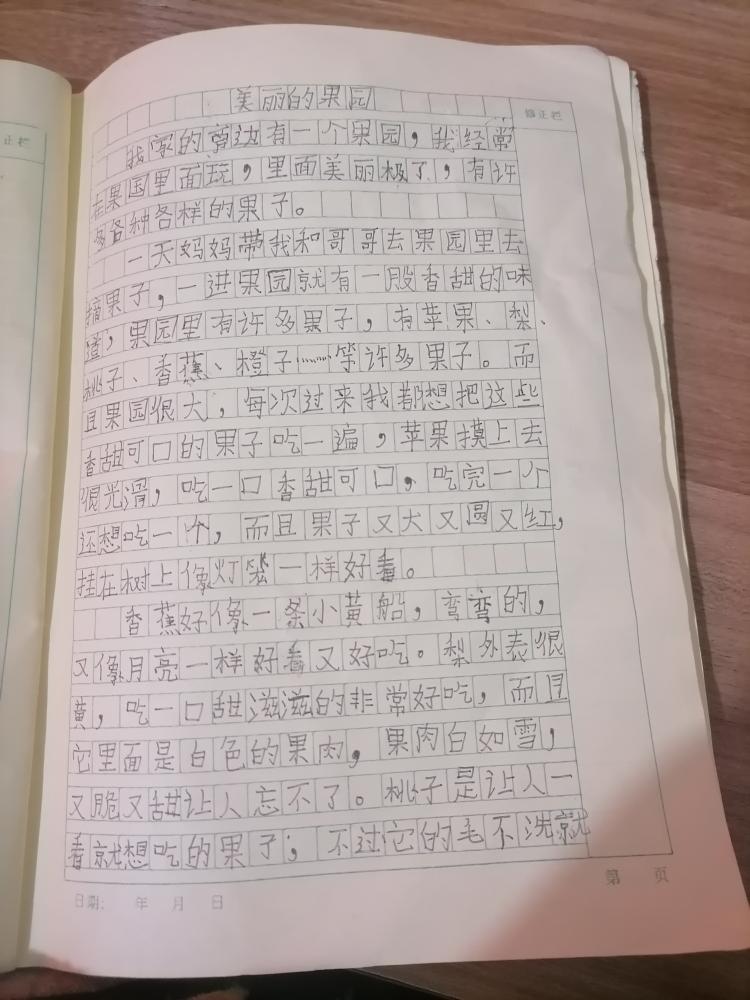 美丽的果园
修正栏
正栏
我家的旁边有一个果园，我经常
在果园里面玩，里面美丽极了，有许
多各种各样的果子。
一天妈妈带我和哥哥去果园里去
摘果子，一进果园就有一股香甜的味
道，果园里有许多果子，有苹果、梨、
桃子、香蕉、橙子……等许多果子。而
且果园很大，每次过来我都想把这些
香甜可口的果子吃一遍，苹果摸上去
很光滑，吃一口香甜可口，吃完一个
还想吃一个，而且果子又大又圆又红，
挂在树上像灯笼一样好看。
香蕉好像一条小黄船，弯弯的，
又像月亮一样好看又好吃。梨外表很
黄，吃一口甜滋滋的非常好吃，而且
它里面是白色的果肉，果肉白如雪，
又脆又甜让人忘不了。桃子是让人一
看就想吃的果子；不过它的毛不洗就
第 页
日期： 年 月 日